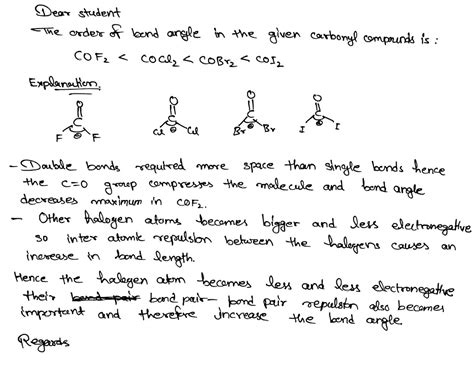 Dear student
The order of bond angle in the given carbonyl compounds is :
COF2 < COCl2 < COBr2 < COI2
Explanation
O O O O
C C C C
F F Cl Cl Br Br I I
- Double bonds required more space than single bonds hence
the C=O group compresses the molecule and bond angle
decreases maximum in COF2.
- Other halogen atoms becomes bigger and less electronegative
so inter atomic repulsion between the halogens causes an
increase in bond length.
Hence the halogen atom becomes less and less electronegative
their bond pair bond pair - bond pair repulsion also becomes
important and therefore increase the bond angle
Regards